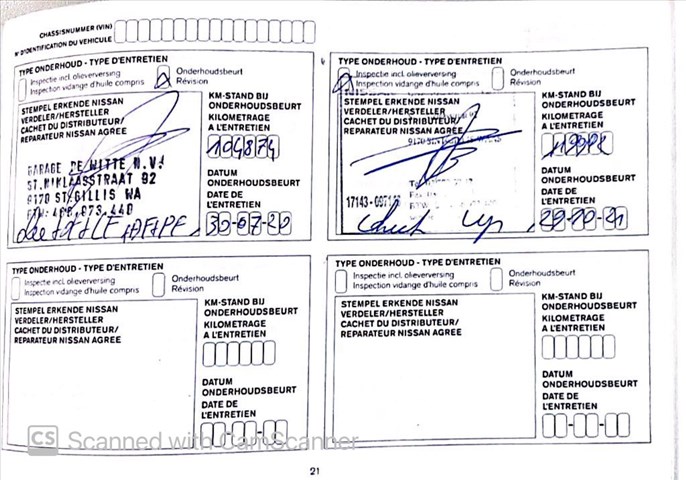 CHASSISNUMMER (VIN)
N° D'IDENTIFICATION DU VEHICULE
TYPE ONDERHOUD - TYPE D'ENTRETIEN
Inspectie incl. olieverversing
Inspection vidange d'huile compris
Onderhoudsbeurt
Révision
STEMPEL ERKENDE NISSAN
VERDELER/HERSTELLER
CACHET DU DISTRIBUTEUR/
REPARATEUR NISSAN AGREE
GARAGE DE WITTE N.V.
ST.NIKLAASSTRAAT 92
9170 ST.GILLIS WA
KM-STAND BIJ
ONDERHOUDSBEURT
KILOMETRAGE
A L'ENTRETIEN
104874
DATUM
ONDERHOUDSBEURT
DATE DE
L'ENTRETIEN
30-07-20
TYPE ONDERHOUD - TYPE D'ENTRETIEN
Inspectie incl. olieverversing
Inspection vidange d'huile compris
Onderhoudsbeurt
Révision
STEMPEL ERKENDE NISSAN
VERDELER/HERSTELLER
CACHET DU DISTRIBUTEUR/
REPARATEUR NISSAN AGREE
9170
17143
Check up
KM-STAND BIJ
ONDERHOUDSBEURT
KILOMETRAGE
A L'ENTRETIEN
DATUM
ONDERHOUDSBEURT
DATE DE
L'ENTRETIEN
TYPE ONDERHOUD - TYPE D'ENTRETIEN
Inspectie incl. olieverversing
Inspection vidange d'huile compris
Onderhoudsbeurt
Révision
STEMPEL ERKENDE NISSAN
VERDELER/HERSTELLER
CACHET DU DISTRIBUTEUR/
REPARATEUR NISSAN AGREE
KM-STAND BIJ
ONDERHOUDSBEURT
KILOMETRAGE
A L'ENTRETIEN
DATUM
ONDERHOUDSBEURT
DATE DE
L'ENTRETIEN
TYPE ONDERHOUD - TYPE D'ENTRETIEN
Inspectie incl. olieverversing
Inspection vidange d'huile compris
Onderhoudsbeurt
Révision
STEMPEL ERKENDE NISSAN
VERDELER/HERSTELLER
CACHET DU DISTRIBUTEUR/
REPARATEUR NISSAN AGREE
KM-STAND BIJ
ONDERHOUDSBEURT
KILOMETRAGE
A L'ENTRETIEN
DATUM
ONDERHOUDSBEURT
DATE DE
L'ENTRETIEN
CS Scanned with CamScanner
21